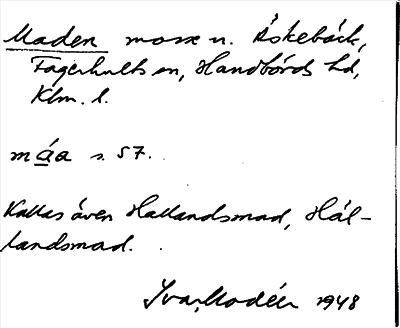 Maden mosse n. Åskebäck,
Fagerhults sn, Handbörds hd,
Klm. l.
måa s. 57.
Kallas även Hallandsmad, Hål-
landsmad.
Ivar Modéer 1948